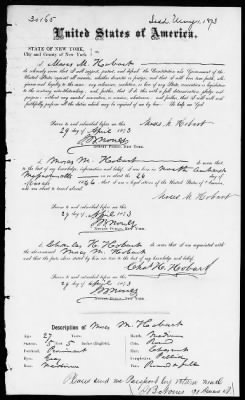 30165
United States of America.
STATE OF NEW YORK,
City and County of New York
I Moses M. Hobart
do solemnly swear that I will support, protect, and defend the Constitution and Government of the
United States against all enemies, whether domestic or foreign, and that I will bear true faith, allegiance
and loyalty to the same, any ordinance, resolution, or law of any State, convention or legislature
to the contrary notwithstanding, and further, that I do this with a full determination, pledge and
purpose, without any mental reservation or evasion whatsoever, and further, that I will well and
faithfully perform all the duties which may be required of me by law. So help me God
Moses M. Hobart
Sworn to and subscribed before me this
29 day of April 1873
NOTARY PUBLIC, New York.
I, Moses M. Hobart do swear that
I was born in North
Massachusetts on or about the 26 day
of 1846 that I am a legal citizen of the United States of America,
and am about to travel abroad.
Moses M. Hobart
Sworn to and subscribed before me this
29 day of April 1873
NOTARY PUBLIC, New York.
I, Charles H. Hobart do swear that I am acquainted with
the above named Moses M. Hobart and that the
facts above stated are true to the best of my knowledge and belief.
Chas H. Hobart
Sworn to and subscribed before me this
29 day of April 1873
NOTARY PUBLIC, New York.
Description of Moses M. Hobart
Age 27
Stature 5 Feet 5 Inches (English).
Forehead Prominent
Eyes Grey
Nose Medium
Mouth Medium
Chin Round
Hair
Complexion
Face Round & full
Please send me Passport by return mail